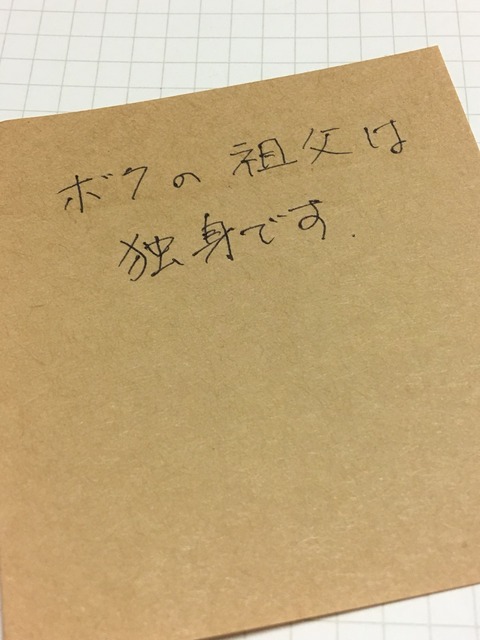 ボクの祖父は
独身です.